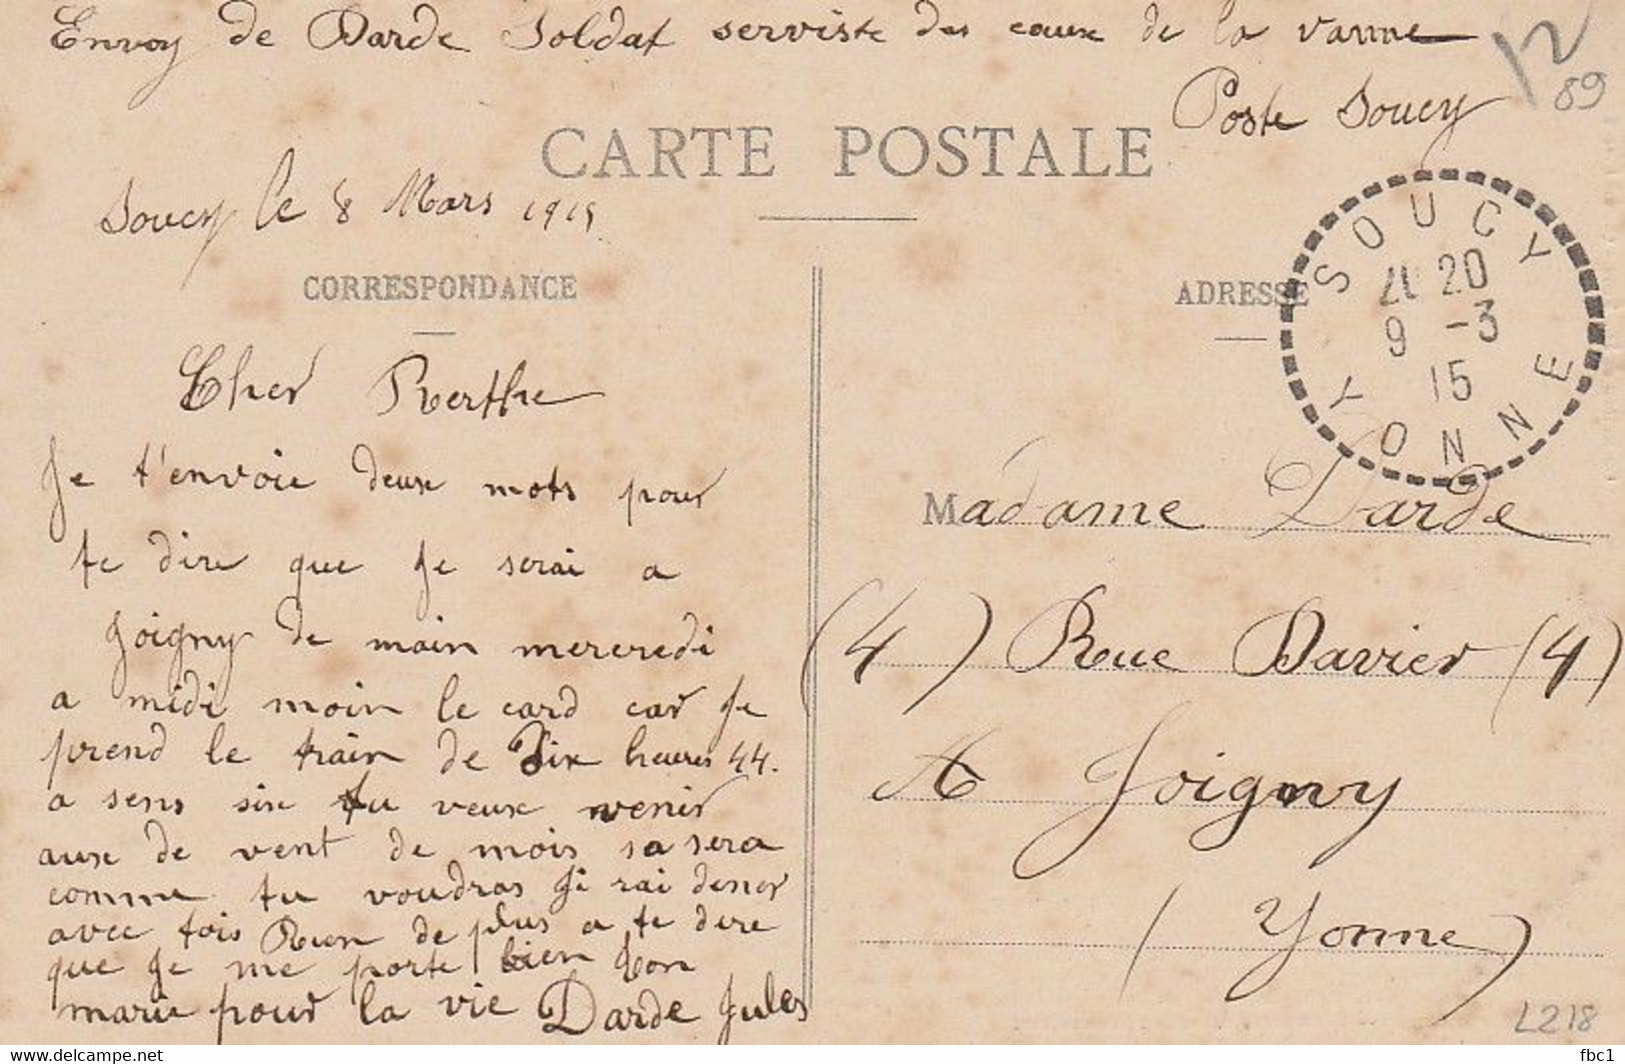 Envoy de Darde Soldat serviste des eaux de la vanne
Poste Soucy
12
89
CARTE POSTALE
Soucy le 8 Mars 1915
CORRESPONDANCE
ADRESSE
SOUCY
20
9 -3
15
YONNE
Cher Berthe
Je t'envoie deux mots pour
te dire que je serai a
Joigny de main mercredi
a midi moin le card car je
prend le train de Dix heures 44.
a sens six tu veux venir
aux de vent de mois sa sera
comme tu voudras ji rai dener
avec tois Rien de plus a te dire
que je me porte bien ton
marie pour la vie Darde Jules
Madame Darde
(4) Rue Davier (4)
A Joigny
(Yonne)
L218
www.delcampe.net
fbc1